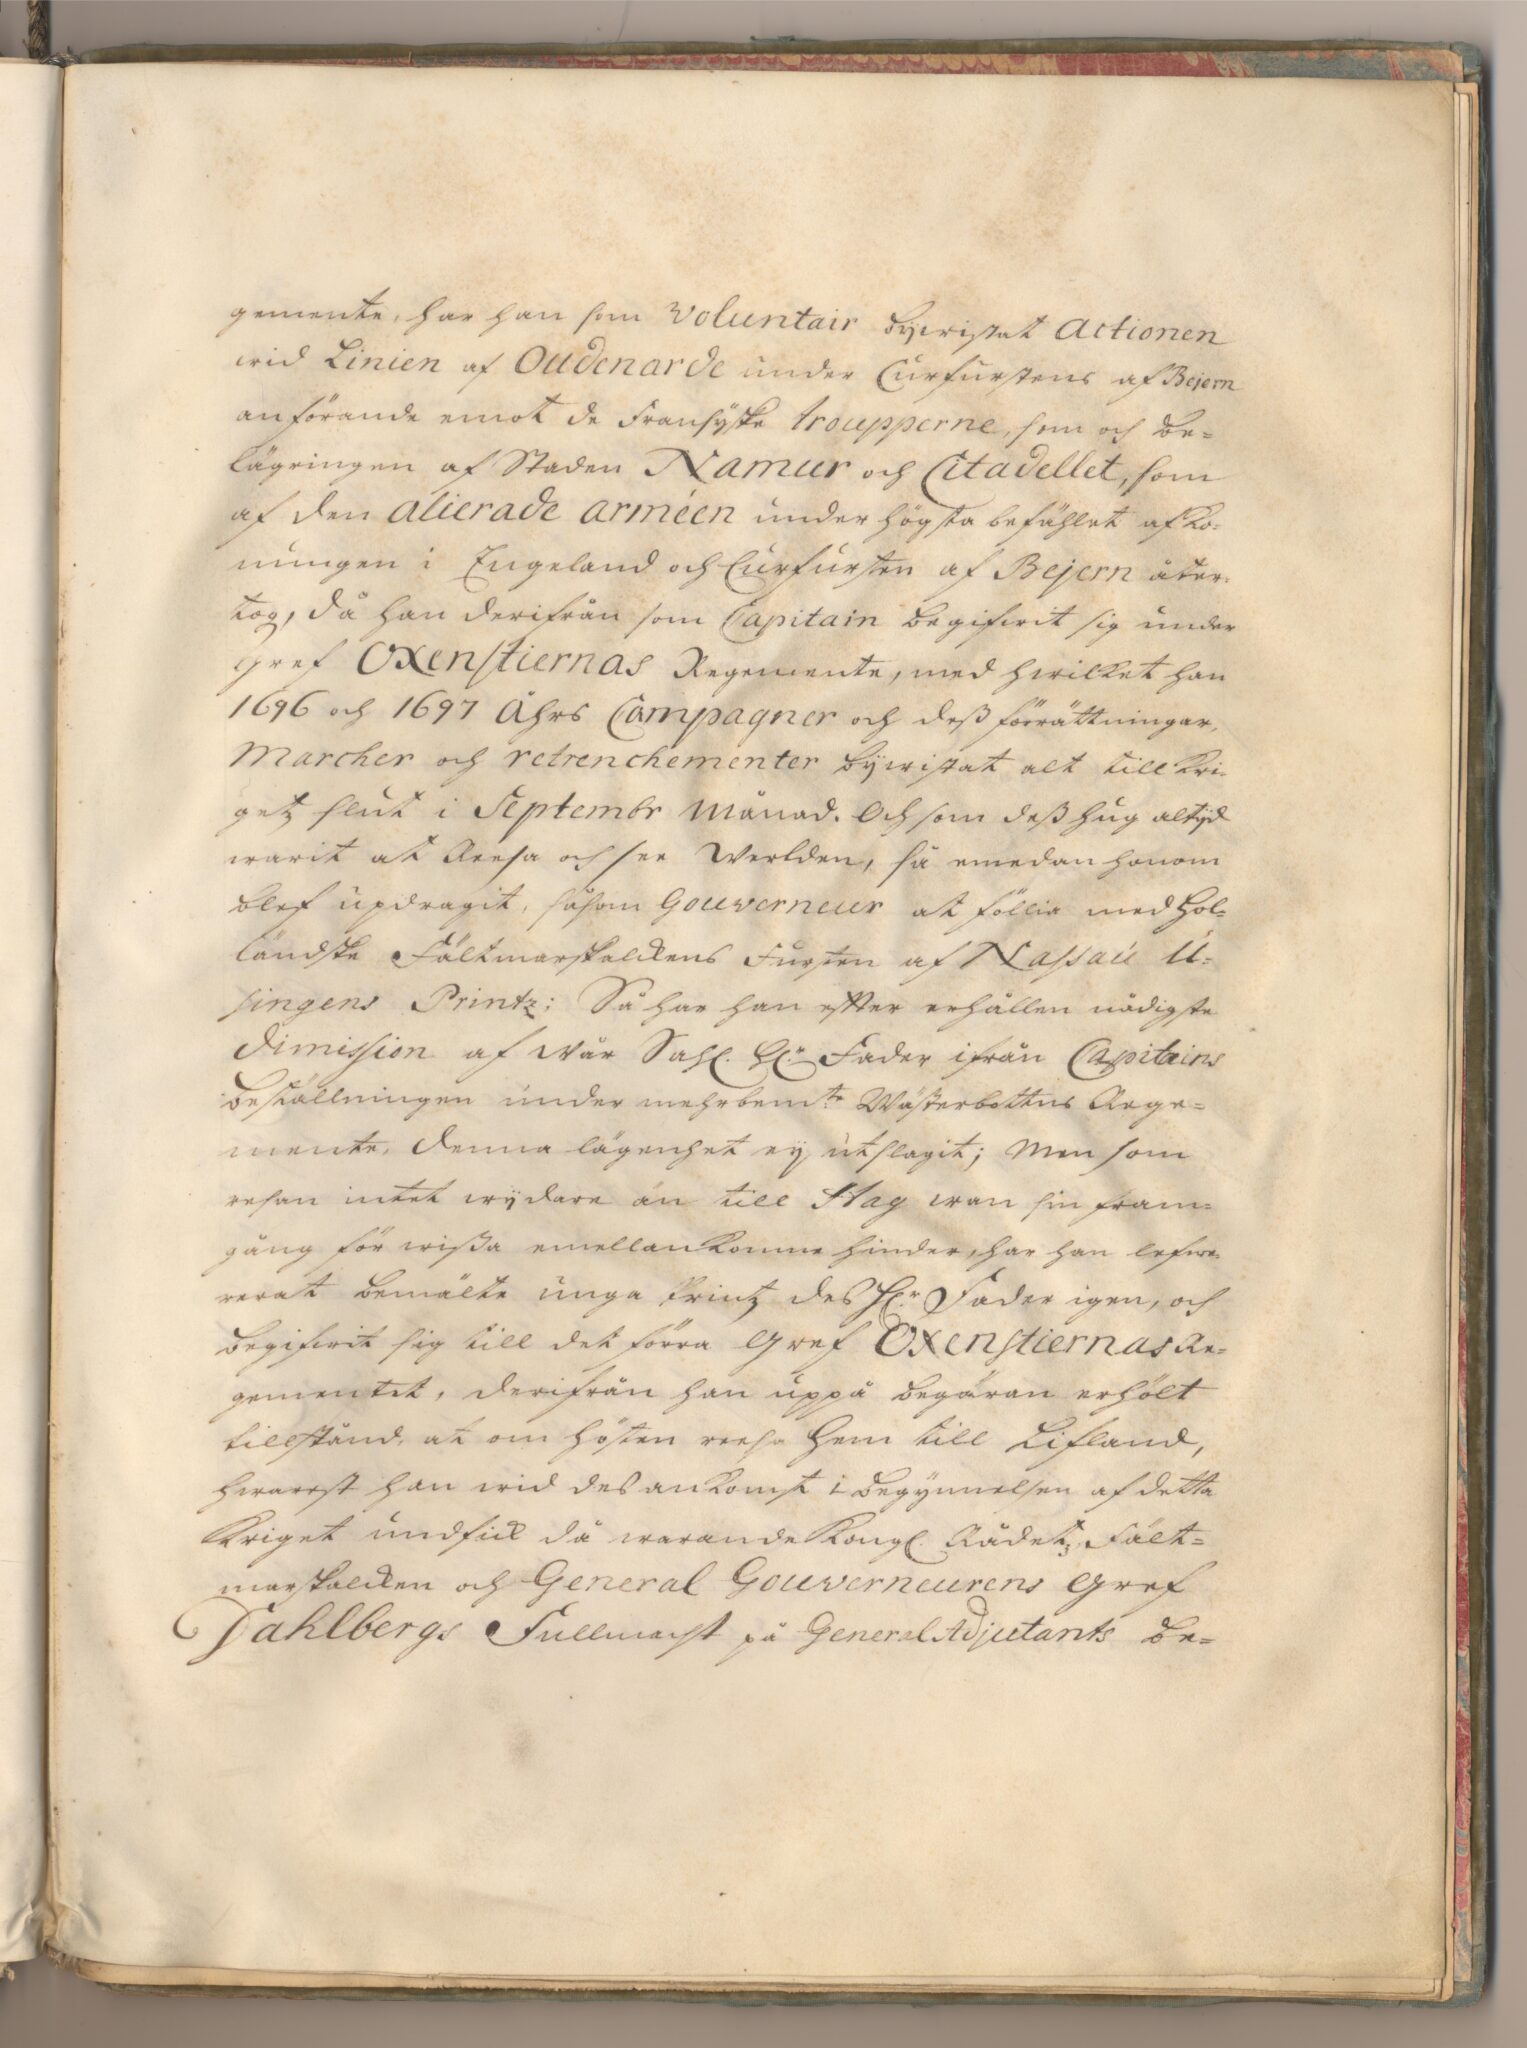 gemente, har han som Voluntair bijwistat Actionen
wid Linien af Oudenarde under Curfurstens af Bejern
anförande emot de Fransÿske troupperne, som och be-
lägringen af Staden Namur och Citadellet, som
af den alierade arméen under högsta befählet af Ko-
nungen i Engeland och Curfursten af Bejern åter-
tog, då han derifrån som Capitain begifwit sig under
Gref Oxenstiernas Regemente, med hwilket han
1696 och 1697 Åhrs Campagner och deß förrättningar,
Marcher och retrenchementer bijwistat alt till Kri-
getz slut i Septembr Månad. Och som deß hug altijd
warit at Reesa och see Werlden, så emedan honom
blef updragit, såsom Gouverneur at föllia med Hol-
ländske Fältmarskalckens Fursten af Nassau U-
singens Printz; Så har han efter erhållen nådigste
dimission af wår Sahl. Hr. Fader ifrån Capitains
beställningen under mehrbemte Wästerbottns Rege-
mente, denna lägenhet ey utslagit; Men som
resan intet wijdare än till Hag wan sin fram-
gång för wißa emellankomne hinder, har han lefwe-
rerat bemälte unga Printz des Hr. Fader igen, och
begifwit sig till det förra Gref Oxenstiernas Re-
gementet, derifrån han uppå begäran erhölt
tillstånd, at om hösten reesa hem till Lifland,
hwarest han wid des ankomst i begynnelsen af detta
Kriget undfick då warande Kongl. Rådetz, Fält-
marskalcken och General Gouverneurens Gref
Dahlbergs Fullmacht på General Adjutants be-